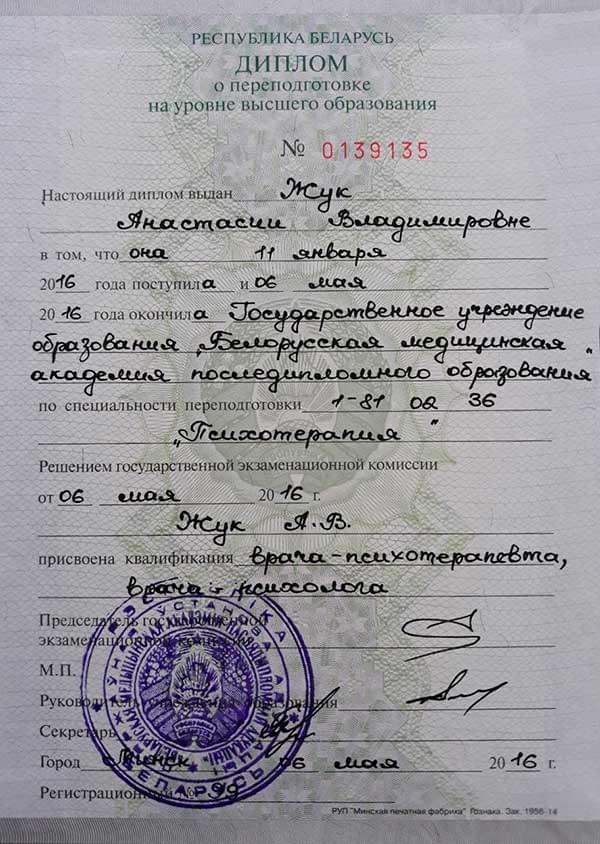 РЕСПУБЛИКА БЕЛАРУСЬ
ДИПЛОМ
о переподготовке
на уровне высшего образования
№ 0139135
Настоящий диплом выдан Жук
Анастасии Владимировне
в том, что она 11 января
2016 года поступила и 06 мая
2016 года окончила Государственное учреждение
образования „Белорусская медицинская
академия последипломного образования"
по специальности переподготовки 1-81 02 36
„Психотерапия"
Решением государственной экзаменационной комиссии
от 06 мая 2016 г.
Жук А.В.
присвоена квалификация врача-психотерапевта,
врача-психолога
Председатель государственной
экзаменационной комиссии
М.П.
Руководитель учреждения образования
Секретарь
Город Минск 06 мая 2016 г.
Регистрационный № 99
РУП "Минская печатная фабрика" Гознака. Зак. 1956-14